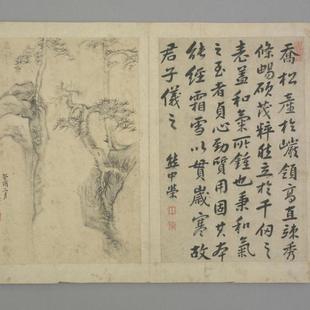 喬松產於巖領高直竦秀
條暢碩茂粹然立於千仞之
表蓋和氣所鍾也秉和氣
之至者貞心勁質用固其本
能經霜雪以貫歲寒故
君子儀之